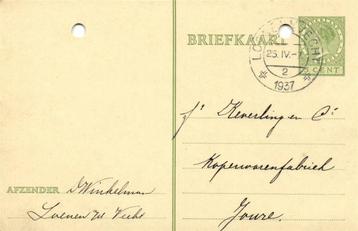 BRIEFKAART
25.IV.
2
1937
CENT
Keverling en Co
Koperwarenfabriek
Joure.
AFZENDER D Winkelman
Loenen a/d Vecht